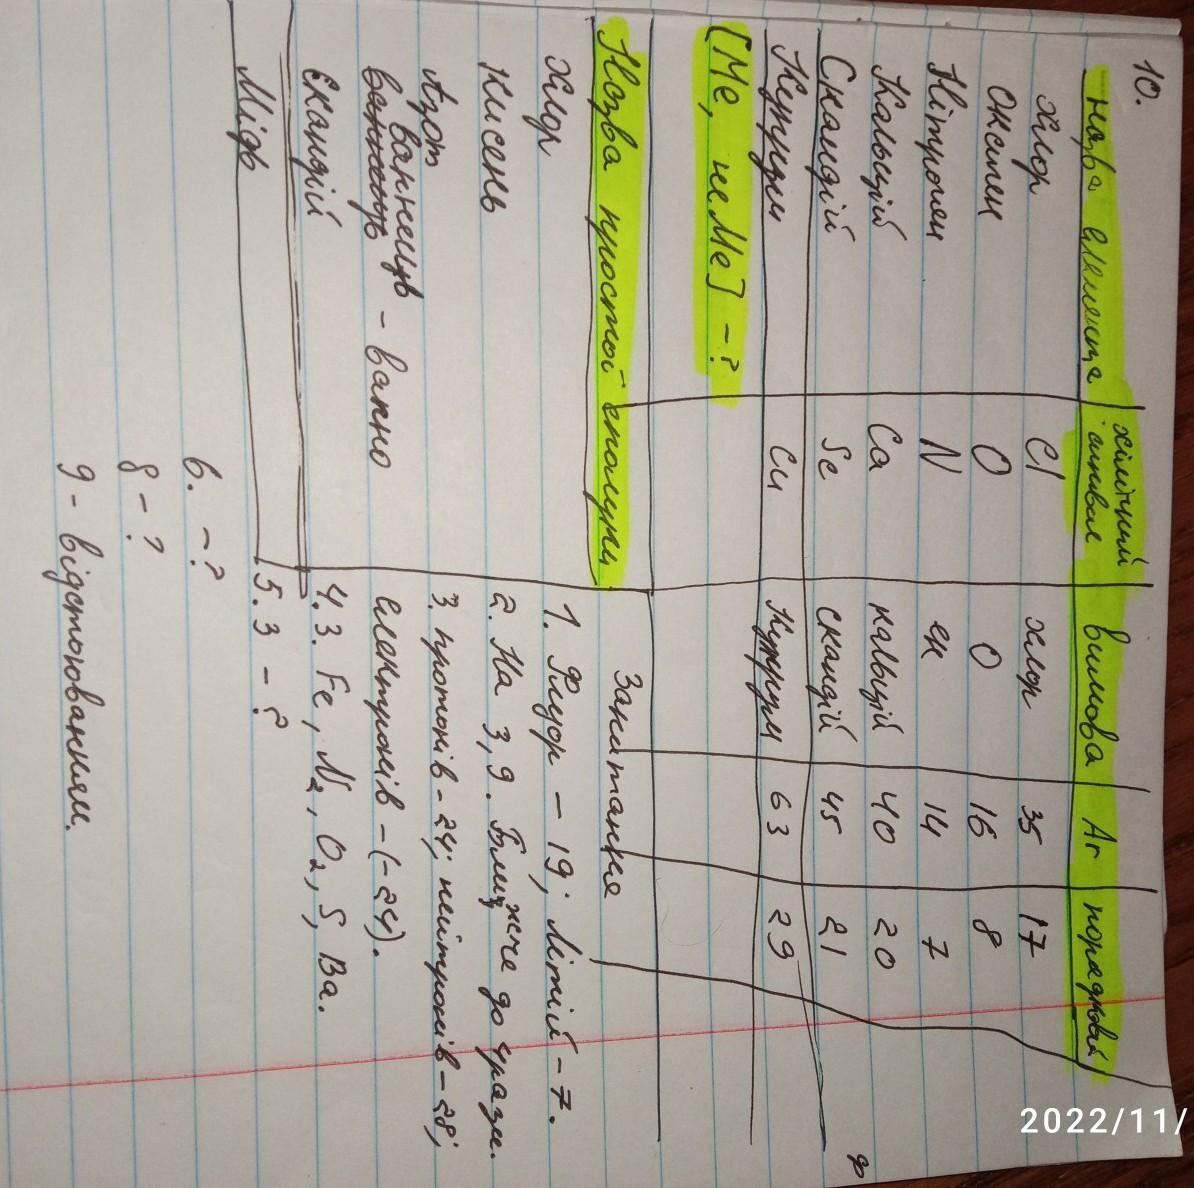 10.
назва елемента хімічний символ вимова Ar порядковий
хлор Cl хлор 35 17
Оксиген O O 16 8
Нітроген N ен 14 7
Кальцій Ca кальцій 40 20
Скандій Sc скандій 45 21
Купрум Cu Купрум 63 29
[Me, неMe] - ?
Назва простої сполуки
Хлор
Кисень
Азот
ваннець - вапно
Скандій
Мідь
Запитання
1. Флуор - 19; Літій - 7.
2. На 3,9. Ближче до фрази.
3. протонів - 24; нейтронів - 28;
електронів - (-24).
4.3. Fe, N2, O2, S, Ba.
5.3 - ?
6. - ?
8 - ?
9 - відстоюванням.
ф
2022/11/